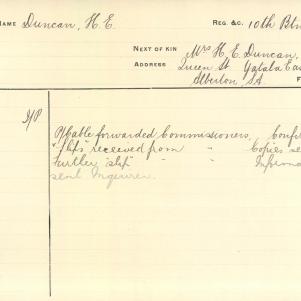 NAME Duncan, H. E. REG. &C. 10th Btn
NEXT OF KIN Mrs H. E. Duncan,
ADDRESS Queen St Yatala Eas
Alberton, SA F
Cable forwarded Commissioners, Confi
"slips" received from " Copies se
Further "slip" " Informa
sent Inquirer.